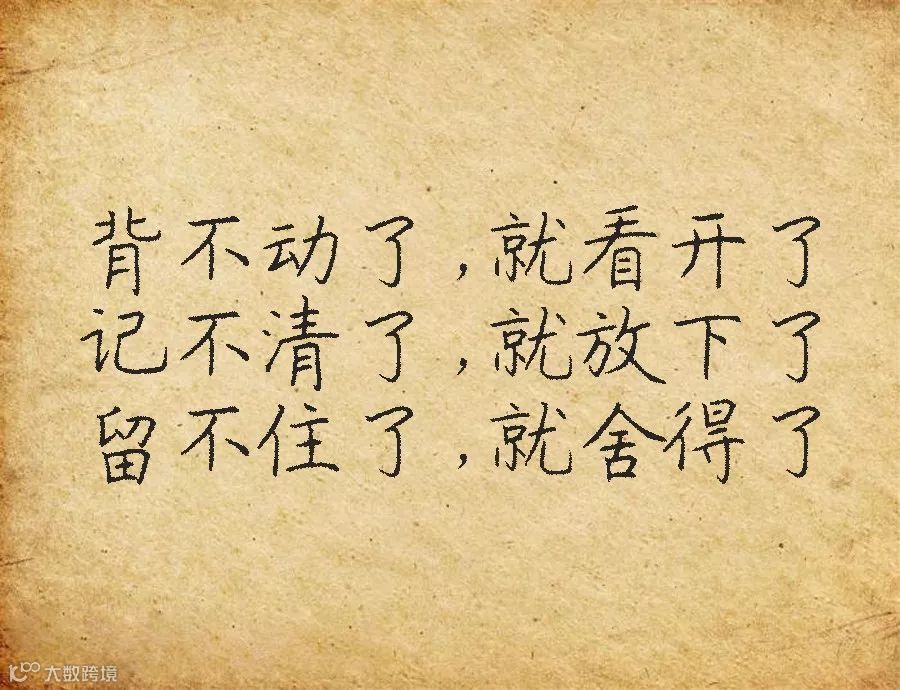 背不动了,就看开了
记不清了,就放下了
留不住了,就舍得了
大数跨境